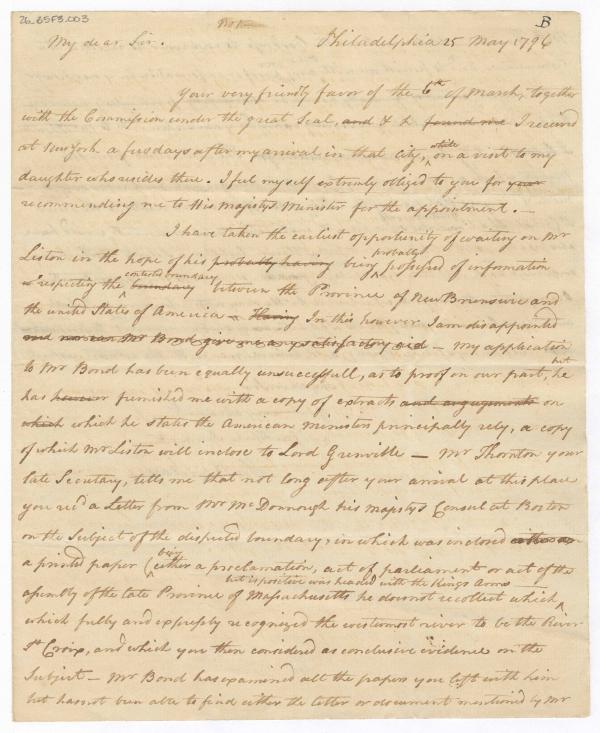 26.85F3.003
B
My dear Sir. Philadelphia 25 May 1796
Your very friendly favor of the 6th of March, together
with the Commission under the great Seal, and & c found me I received
at New York a few days after my arrival in that City, while on a visit to my
daughter who resides there. I feel myself extremely obliged to you for your
recommending me to His Majestys Minister for the appointment. —
I have taken the earliest opportunity of waiting on Mr
Liston in the hope of his probably having being probably possessed of information
respecting the boundary contested boundary between the Province of New Brunswic and
the united States of America — Having In this however I am disappointed
and nor can Mr Bond give me any satisfactory aid — My application
to Mr Bond has been equally unsuccessfull, as to proof on our part, but he
has however furnished me with a copy of extracts and arguments on
which which he states the American ministers principally rely, a copy
of which Mr Liston will inclose to Lord Grenville — Mr Thornton your
late Secutary, tells me that not long after your arrival at this place
you recd a Letter from Mr McDonnough his majestys Consul at Boston
on the Subject of the disputed boundary, in which was inclosed
a printed paper (being either a proclamation, act of parliament or act of the
assembly of the late Province of Massachusetts he does not recollect which, but is positive was headed with the Kings Arms
which fully and expressly recognized the westernmost river to be the River
St Croix, and which you then considered as conclusive evidence on the
Subject — Mr Bond has examined all the papers you left with him
but has not been able to find either the letter or document mentioned by Mr